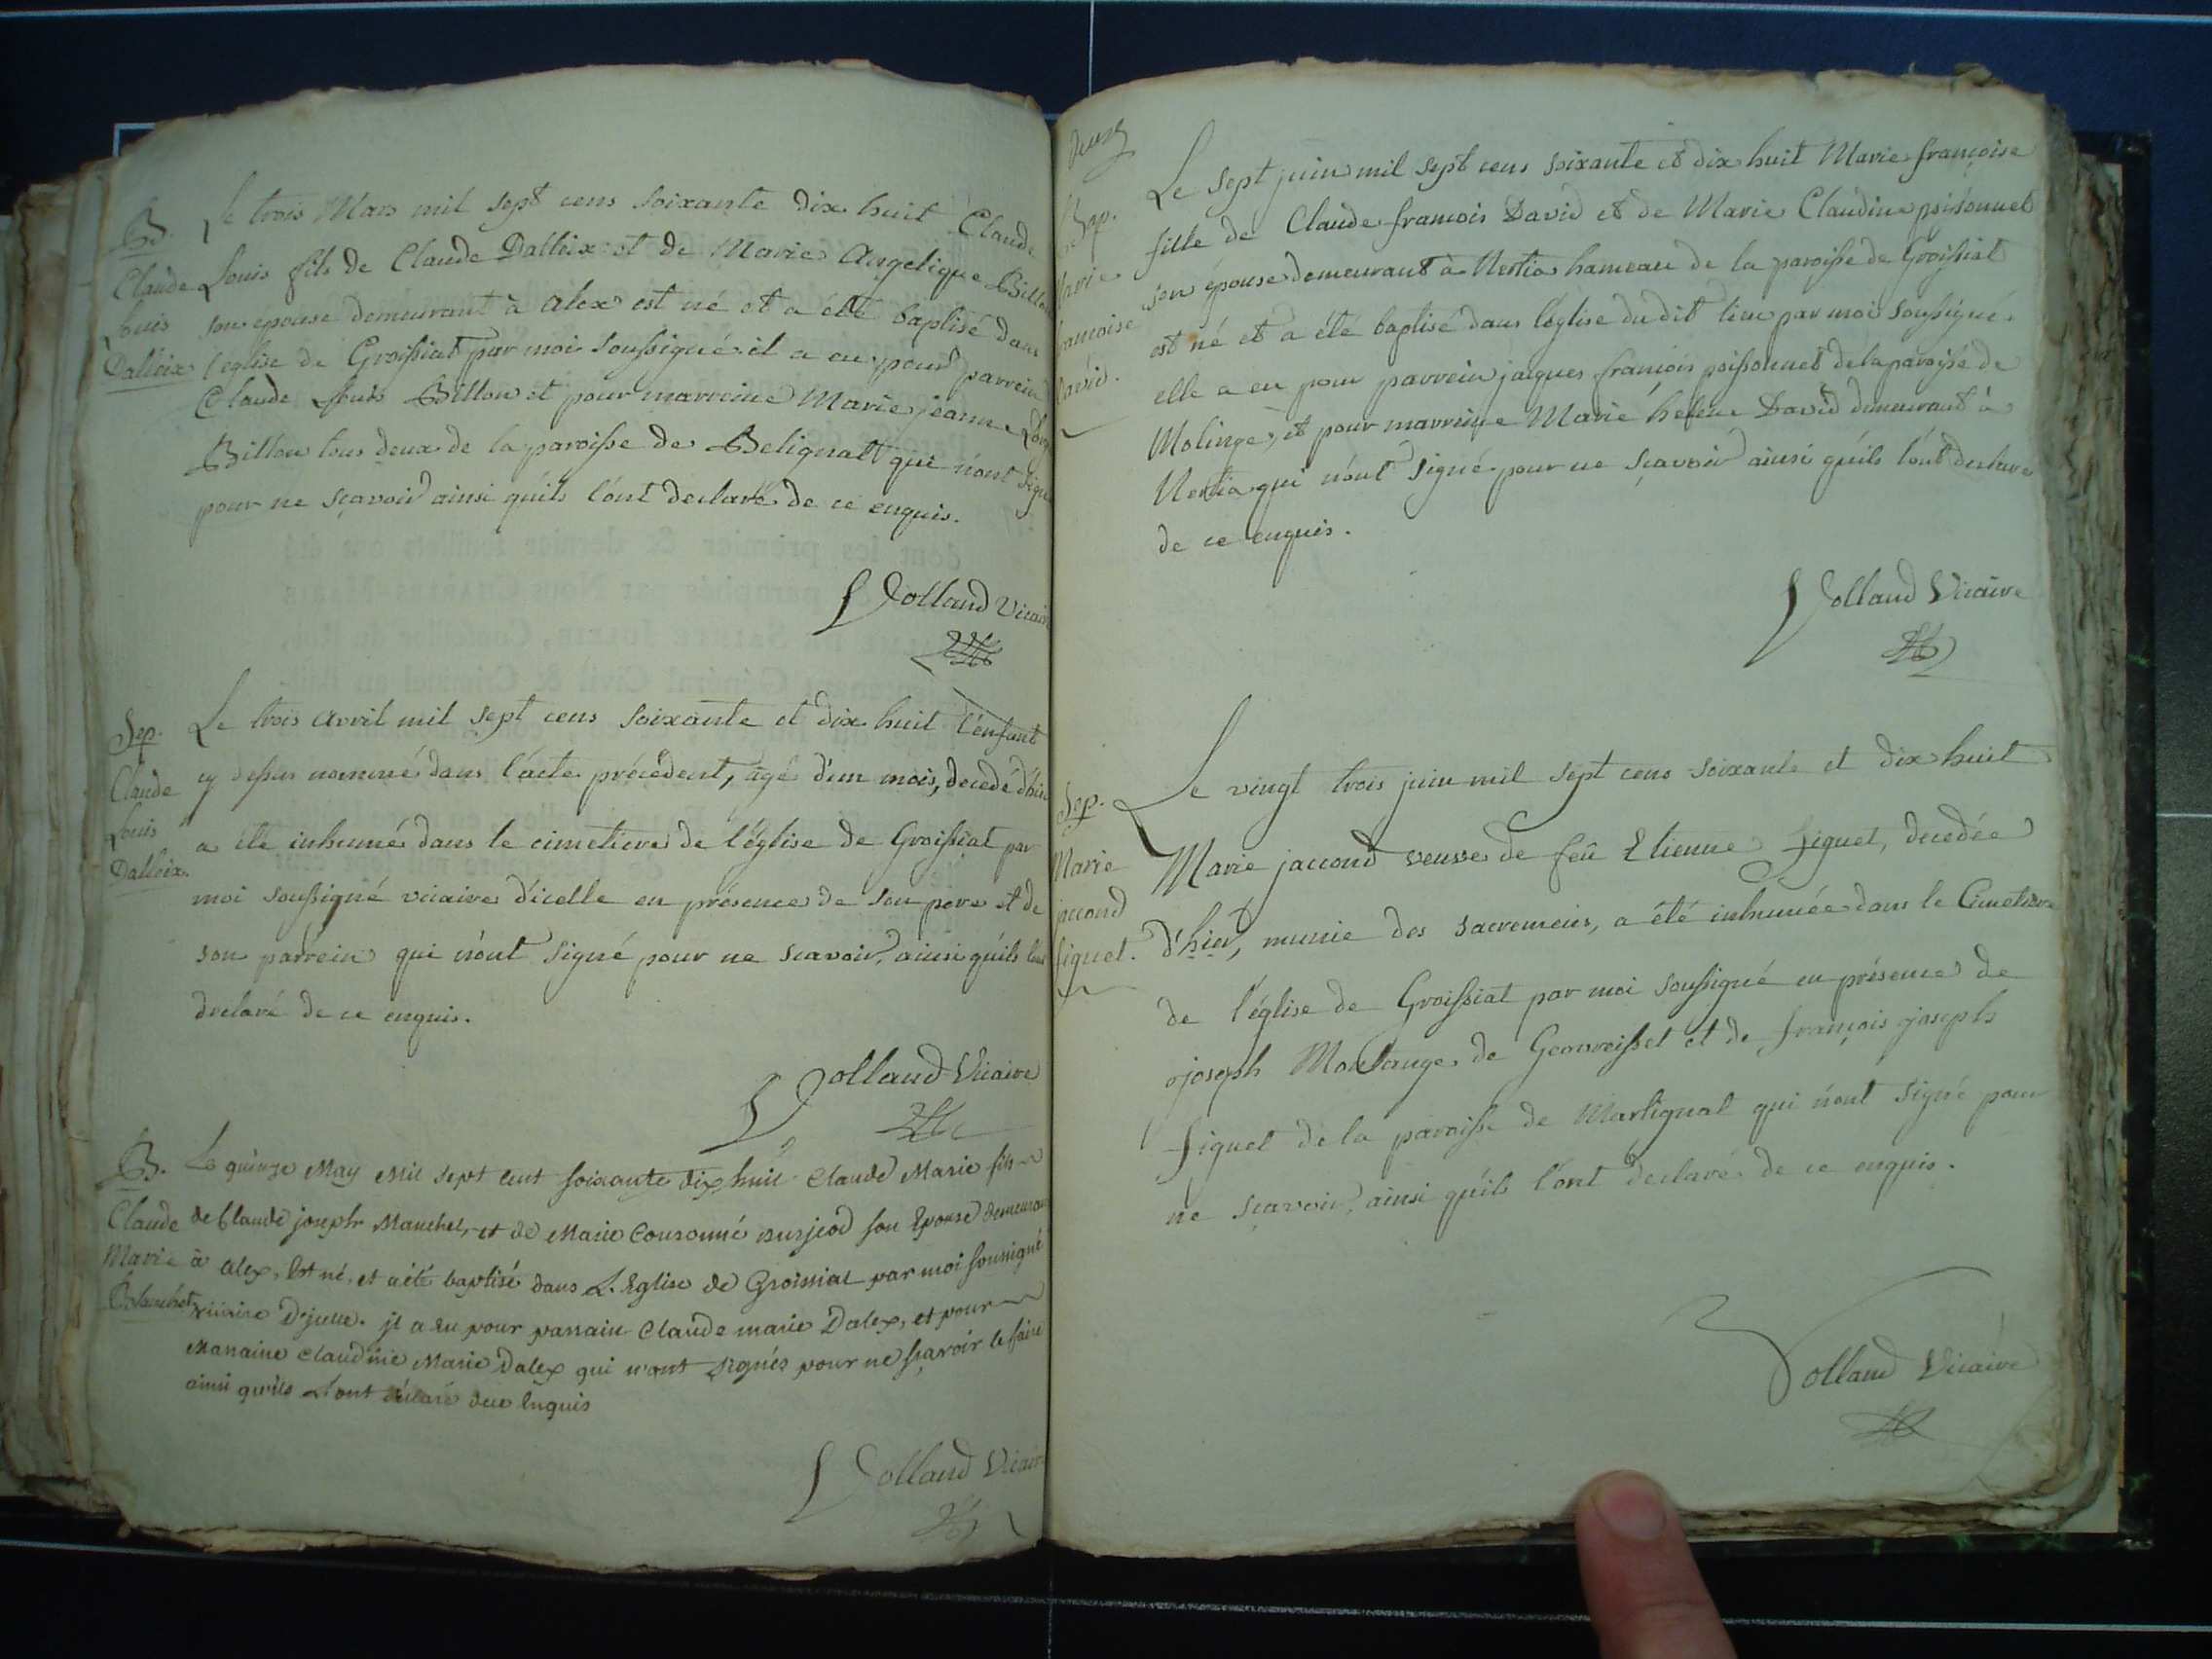 B.
Claude
Louis
Dalleix
Le trois Mars mil sept cens soixante dix huit Claude
Louis fils de Claude Dalleix et de Marie Angelique Billon
son epouse demeurant à alex est né et a été baptisé dans
l'eglise de Groissiat par moi soussigné il a eu pour parrein
Claude Louis Billon et pour marreine Marie jeanne
Billon tous deux de la paroisse de Belignat qui n'ont signé
pour ne sçavoir ainsi qu'ils l'ont declaré de ce enquis.
Volland Vicaire
Sep.
Claude
Louis
Dalleix.
Le trois avril mil sept cens soixante et dix huit l'enfant
cy dessus nommé dans l'acte précédent, agé d'un mois, decedé d'hier
a été inhumé dans le cimetiere de l'église de Groissiat par
moi soussigné vicaire d'icelle en présence de son pere et de
son parrein qui n'ont signé pour ne scavoir, ainsi qu'ils l'ont
declaré de ce enquis.
Volland Vicaire
B.
Claude
Marie
Le quinze May Mil sept cent soixante dix huit Claude Marie fils
de Claude joseph Manchet, et de Marie Couronné surjeod son Epouse demeurant
à alex, Est né, et a été baptisé dans L'Eglise de Groissiat par moi soussigné
vicaire D'jcelle. jl a eu pour parrain Claude marie Dalex, et pour
Marraine Claudine Marie Dalex qui n'ont signés pour ne sçavoir le faire
ainsi qu'ils L'ont déclaré de ce Enquis
Volland Vicaire
deux
Bap.
Marie
francoise
david.
Le sept juin mil sept cens soixante et dix huit Marie françoise
fille de Claude francois David et de Marie Claudine poissonnet
son épouse demeurant à Nertia hameau de la paroisse de Groissiat
est né et a été baptisé dans l'église du dit lieu par moi soussigné.
elle a eu pour parrein jacques françois poissonnet de la paroisse de
Molinge, et pour marreine Marie helene David demeurant à
Nertia qui n'ont signé pour ne sçavoir ainsi qu'ils l'ont declaré
de ce enquis.
Volland Vicaire
Sep.
Marie
jacond
figuet.
Le vingt trois juin mil sept cens soixante et dix huit
Marie jacond veuve de feû Etienne figuet, decedée
d'hier, munie des sacremens, a été inhumée dans le Cimetiere
de l'église de Groissiat par moi soussigné en présence de
joseph Montange de Geovreisset et de françois joseph
figuet de la paroisse de Martignat qui n'ont signé pour
ne sçavoir, ainsi qu'ils l'ont declaré de ce enquis.
Volland Vicaire